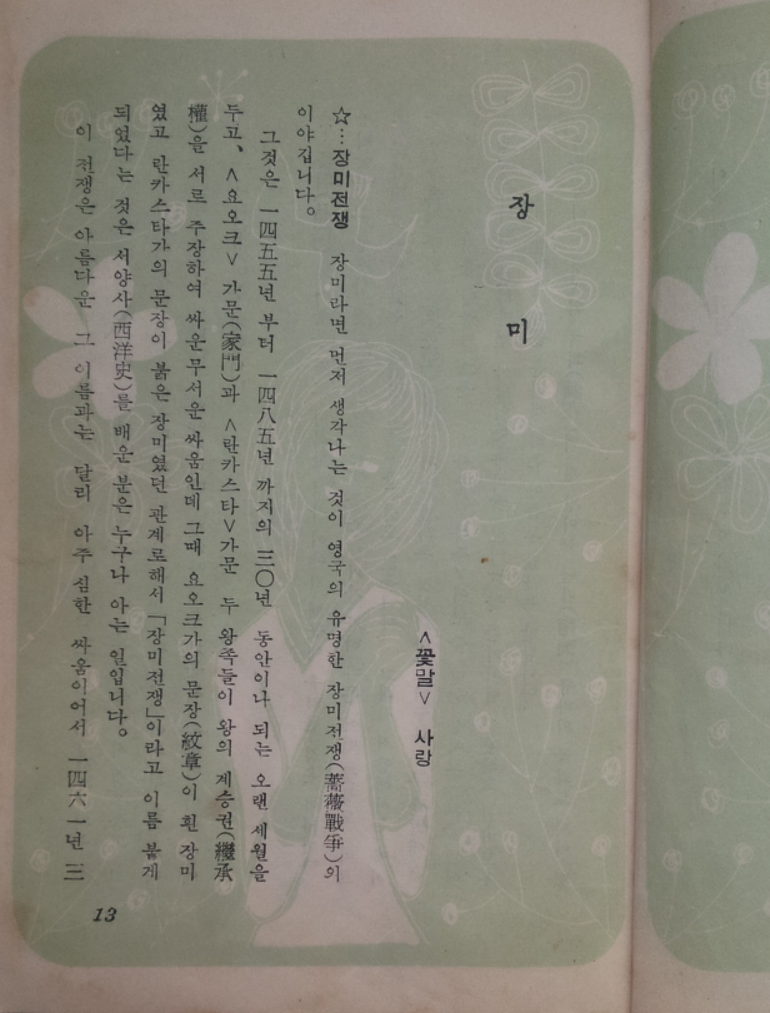 장 미
<꽃말> 사랑
☆…장미전쟁 장미라면 먼저 생각나는 것이 영국의 유명한 장미전쟁(薔薇戰爭)의
이야깁니다。
그것은 一四五五년 부터 一四八五년 까지의 三〇년 동안이나 되는 오랜 세월을
두고、<요오크> 가문(家門)과 <란카스타>가문 두 왕족들이 왕의 계승권(繼承
權)을 서로 주장하여 싸운무서운 싸움인데 그때 요오크가의 문장(紋章)이 흰 장미
였고 란카스타가의 문장이 붉은 장미였던 관계로해서 「장미전쟁」이라고 이름 붙게
되었다는 것은 서양사(西洋史)를 배운 분은 누구나 아는 일입니다。
이 전쟁은 아름다운 그 이름과는 달리 아주 심한 싸움이어서 一四六一년 三
13